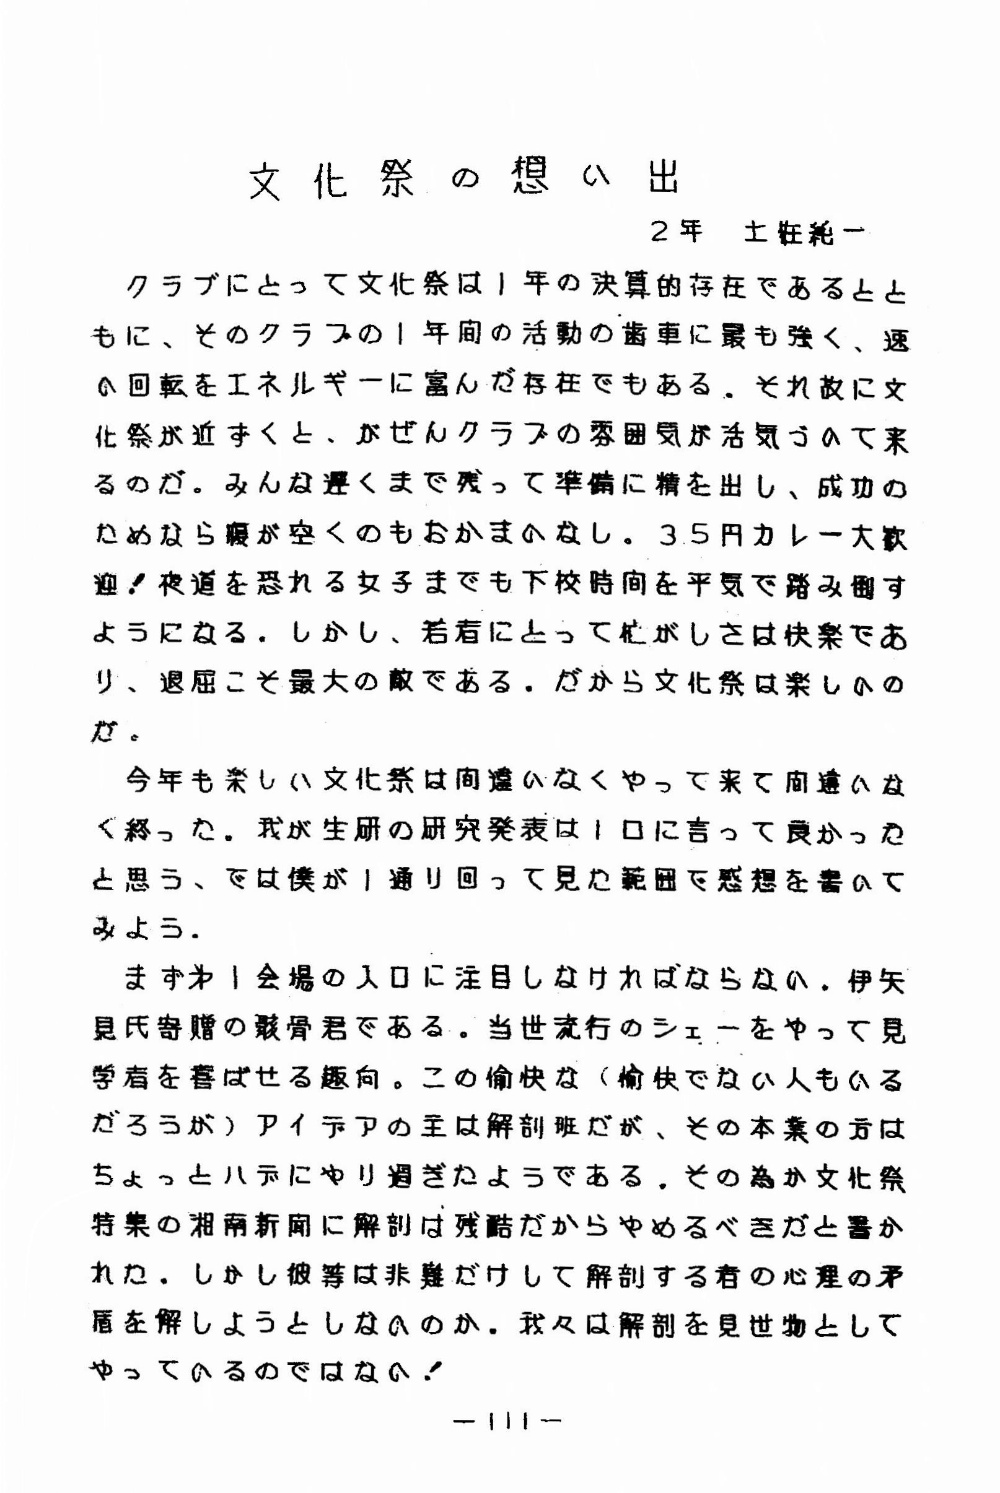 文化祭の想い出
2年　土在純一
クラブにとって文化祭は1年の決算的存在であるとと
もに、そのクラブの1年間の活動の歯車に最も強く、速
い回転をエネルギーに富んだ存在でもある。それ故に文
化祭が近ずくと、がぜんクラブの雰囲気が活気づいて来
るのだ。みんな遅くまで残って準備に精を出し、成功の
ためなら腹が空くのもおかまいなし。35円カレー大歓
迎！夜道を恐れる女子までも下校時間を平気で踏み倒す
ようになる。しかし、若者にとって忙がしさは快楽であ
り、退屈こそ最大の敵である。だから文化祭は楽しいの
だ。
今年も楽しい文化祭は間違いなくやって来て間違いな
く終った。我が生研の研究発表は1口に言って良かった
と思う、では僕が1通り回って見た範囲で感想を書いて
みよう。
まず㐧1会場の入口に注目しなければならない。伊矢
見氏寄贈の骸骨君である。当世流行のシェーをやって見
学者を喜ばせる趣向。この愉快な（愉快でない人もいる
だろうが）アイデアの主は解剖班だが、その本業の方は
ちょっとハデにやり過ぎたようである。その為か文化祭
特集の湘南新聞に解剖は残酷だからやめるべきだと書か
れた。しかし彼等は非難だけして解剖する者の心理の矛
盾を解しようとしないのか。我々は解剖を見世物として
やっているのではない！
－111－